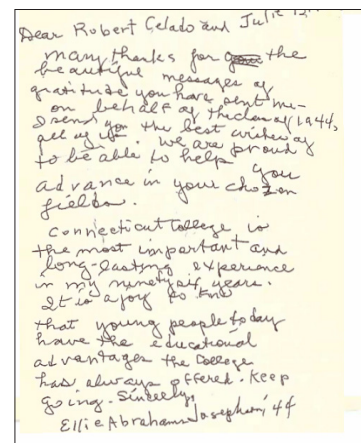 Dear Robert Celado and Julie
Many thanks for the
beautiful messages of
gratitude you have sent me-
on behalf of the class of 1944,
I send you the best wishes of
all of us. We are proud
to be able to help you
advance in your chozen
fields.
Connecticut College is
the most important and
long-lasting experience
in my ninety six years.
It is a joy to
that young people today
have the educational
advantages the College
has always offered. Keep
going. Sincerely,
Ellie Abrahams Josephson, '44